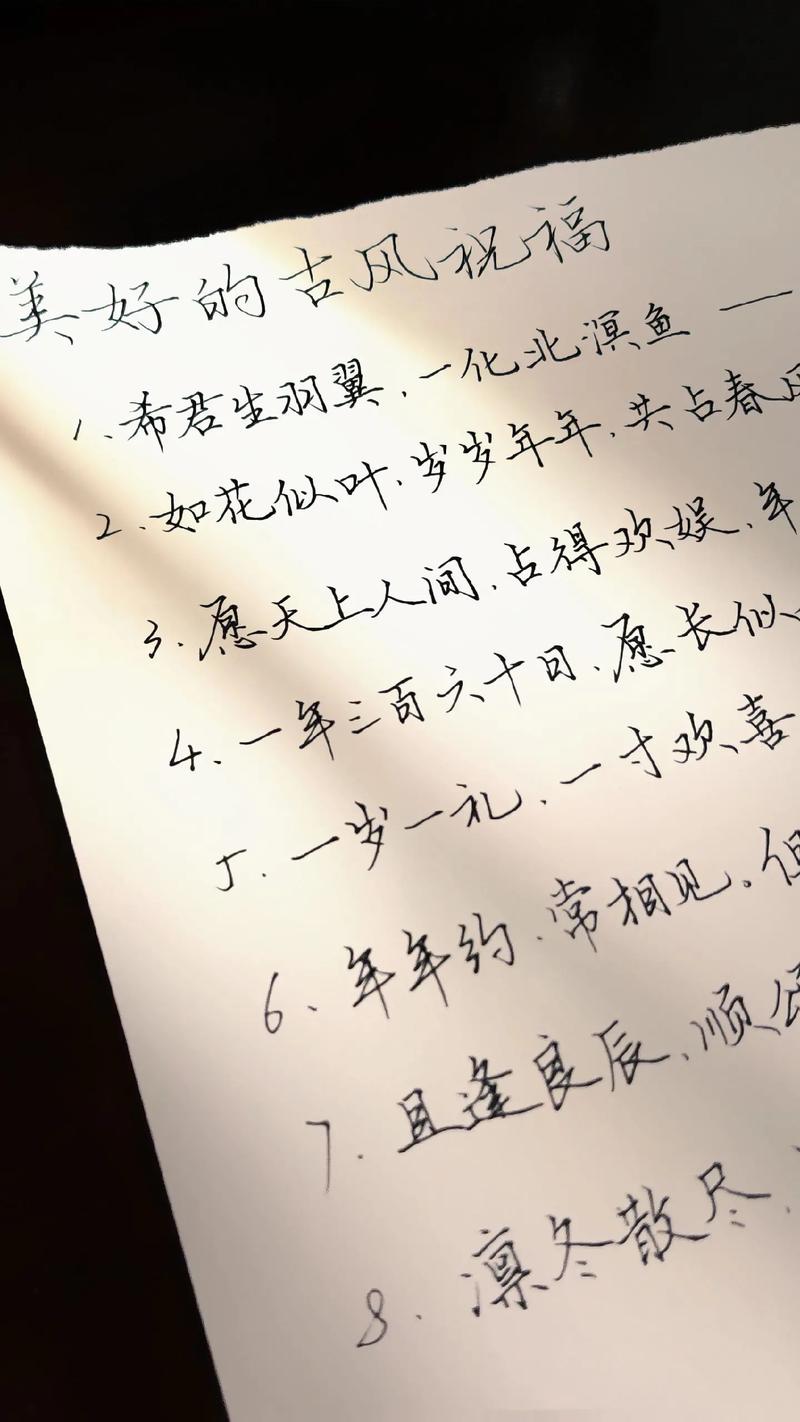 美好的古风祝福
1、希君生羽翼，一化北溟鱼 —
2、如花似叶，岁岁年年，共占春风
3、愿天上人间，占得欢娱，年
4、一年三百六十日，愿长似
5、一岁一礼，一寸欢喜
6、年年约，常相见。但
7、且逢良辰，顺颂
8、凛冬散尽，